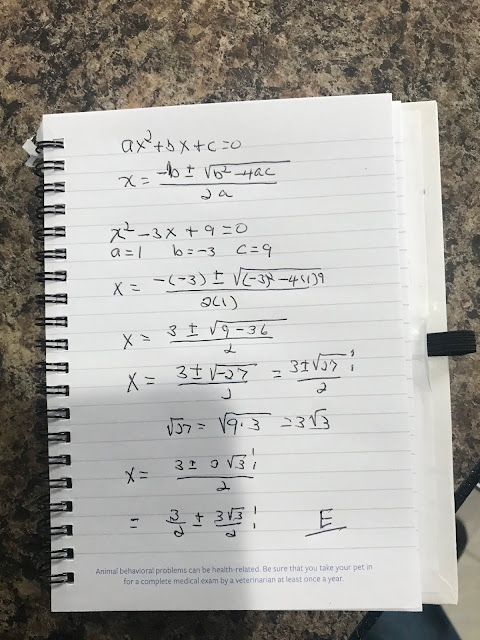 ax²+bx+c=0
x = -b ± √b²-4ac / 2a
x²-3x+9=0
a=1 b=-3 c=9
x = -(-3) ± √(-3)²-4(1)9 / 2(1)
x = 3 ± √9-36 / 2
x = 3±√-27 / 2 = 3±√27 i / 2
√27 = √9·3 = 3√3
x = 3 ± 3√3 i / 2
= 3/2 ± 3√3/2 i E
Animal behavioral problems can be health-related. Be sure that you take your pet in
for a complete medical exam by a veterinarian at least once a year.